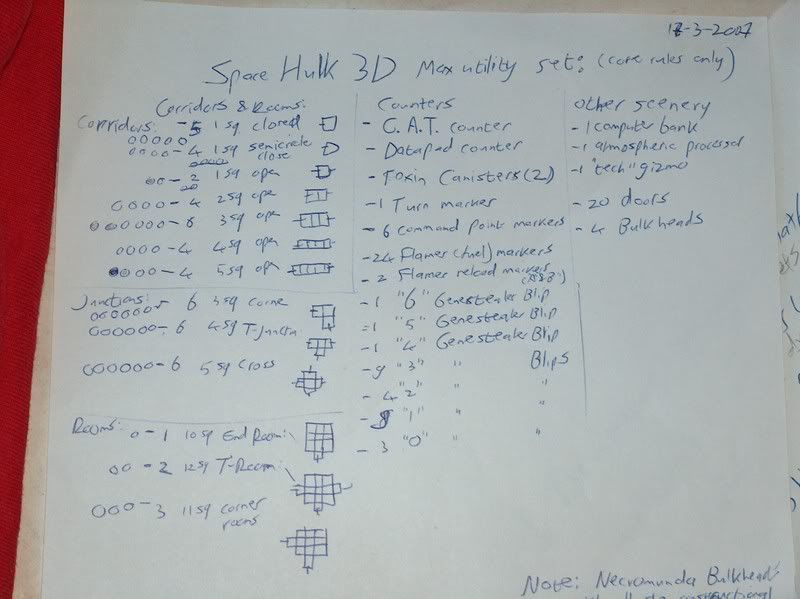 17-3-2007
Space Hulk 3D Max utility set: (core rules only)
Corridors & Rooms:
Corridors: - 5 1sq closed
- 4 1sq semicircle close
- 2 1sq open
- 4 2sq ope
- 6 3sq ope
- 4 4sq ope
- 4 5sq ope
Junctions: 6 3sq corne
- 6 4sq T-Juncti
- 6 5sq Cross
Rooms: - 1 10sq End Room:
- 2 12sq T-Room:
- 3 11sq corner rooms
Counters
- C.A.T. counter
- Datapad counter
- Toxin Canisters (2)
- 1 Turn marker
- 6 Command Point markers
- 24 Flamer (fuel) markers
- 2 Flamer reload markers
- 1 "6" Genestealer Blip
- 1 "5" Genestealer Blip
- 1 "4" Genestealer Blip
- 9 "3" " Blips
- 4 2" " "
- 8 "1" "
- 3 "0" " "
Other scenery
- 1 computer bank
- 1 atmospheric processor
- 1 "tech" gizmo
- 20 doors
- 4 Bulkheads
Note: Necromunda Bulkheads